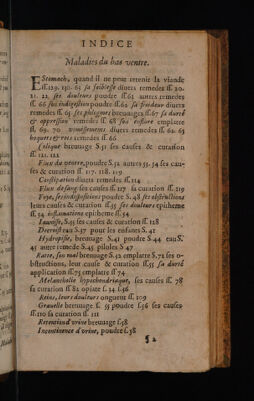 INDICE
Maladies du bas ventre.
EStomach, quand il ne peut retenir la viande
ff.129. 130. 61 sa foiblesse divers remedes ff. 20.
21. 22. ses douleurs poudre ff.61 autres remedes
ff. 66 son indigestion poudre ff.62 sa froideur divers
remedes ff.65 ses phlegmes breuvages ff.67 sa durté
& oppression remedes ff. 68 son emplatre
ff. 69. 70 vomissements divers remedes ff. 62. 63
hoquets & rots remedes ff. 66
Colique breuvage S.51 ses causes & curation
ff. 121. 122
Flux du ventre, poudre S.52 autres 53. 54 ses cau-
ses & curation ff. 117. 118. 119
Constipation divers remedes ff.114
Flux de sang ses causes ff.117 sa curation ff. 119
Foye, ses indispositions poudre S. 48 ses obstructions
leurs causes & curation ff.55 ses douleurs epitheme
ff.54 inflammations epitheme ff.54
Jaunisse, S.55 ses causes & curation ff.128
S.27 pour les enfants S.41
Hydropisie, breuvage S.41 poudre S.44 eau S.
45 autre remede S.45 pilules S.47
Ratte, son mal breuvage S.42 emplatre S.72 ses o-
bstructions, leur cause & curation ff.55 sa durté
application ff.75 emplatre ff.74
Melancholie hypochondriaque, ses causes ff. 78
sa curation ff.82 opiate f.34 f.36
Reins, leurs douleurs onguent ff.109
Gravelle breuvage f. 55 poudre f.56 ses causes
ff.110 sa curation ff. 111
Retention d'urine breuvage f.58
Incontinence d'urine, poudre f.58